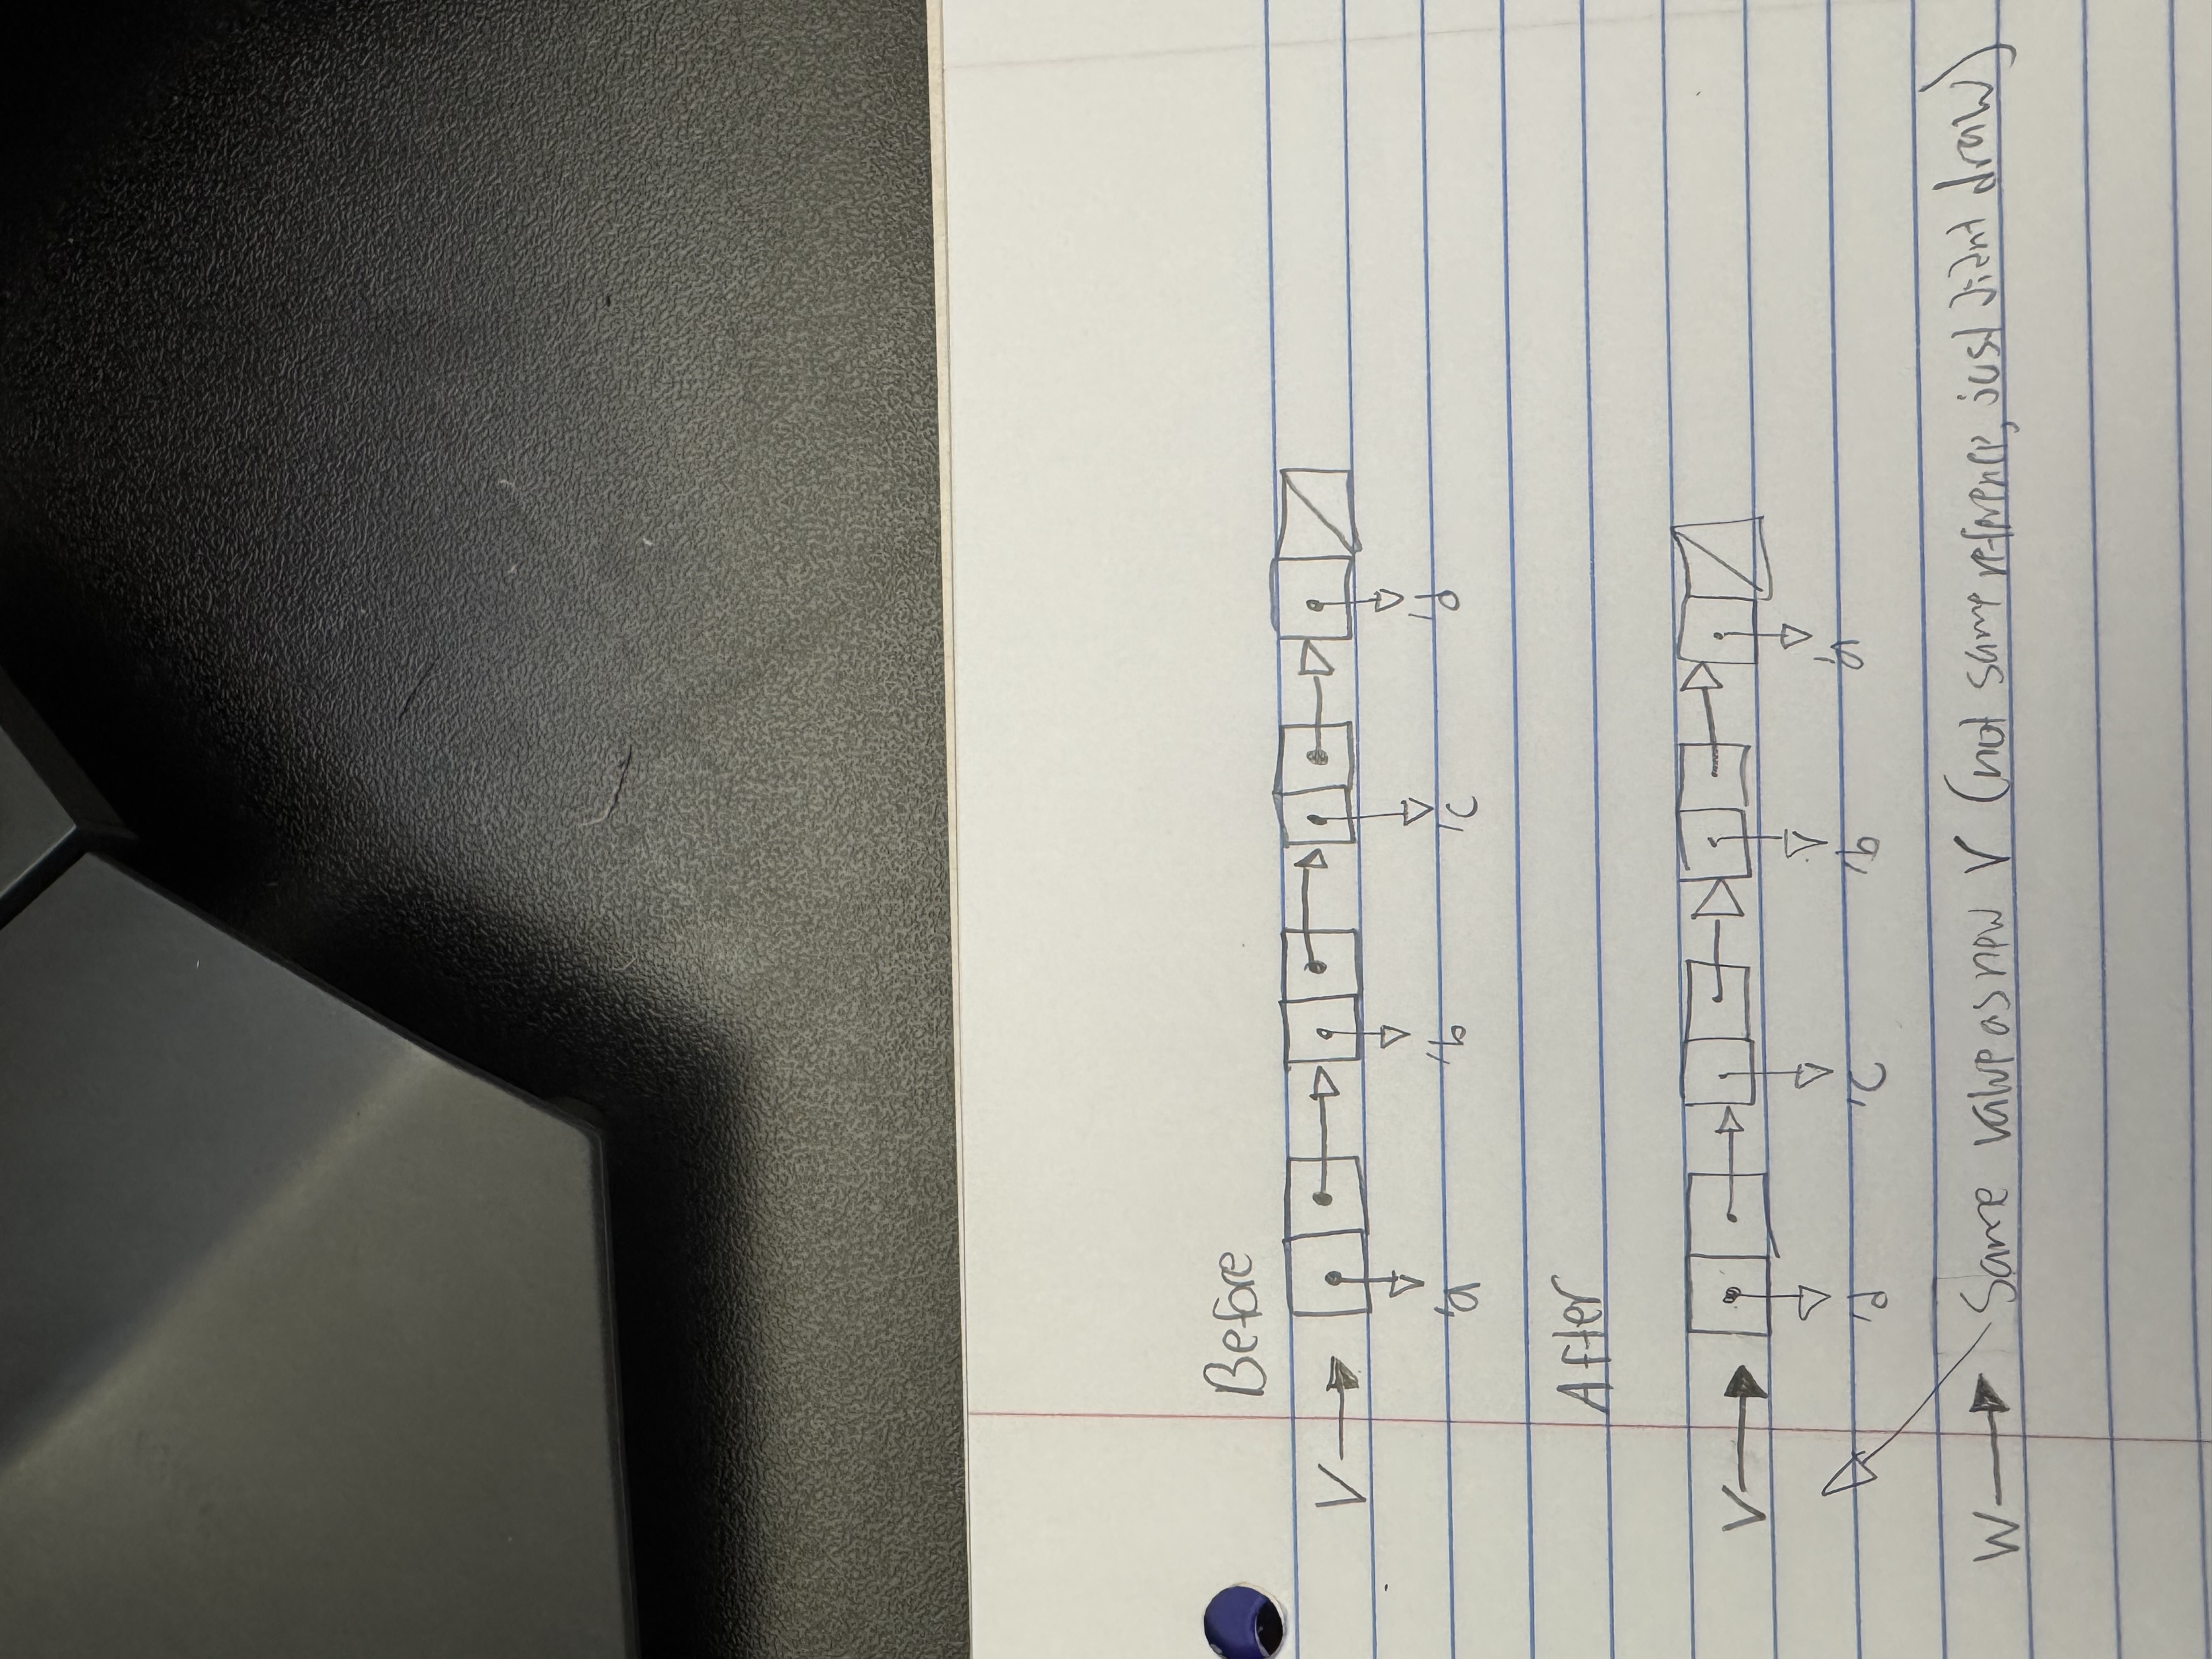 Before
V
'a 'b 'c 'd
After
V
'd 'c 'b 'a
W Same value as new V (not same reference, just didnt draw)